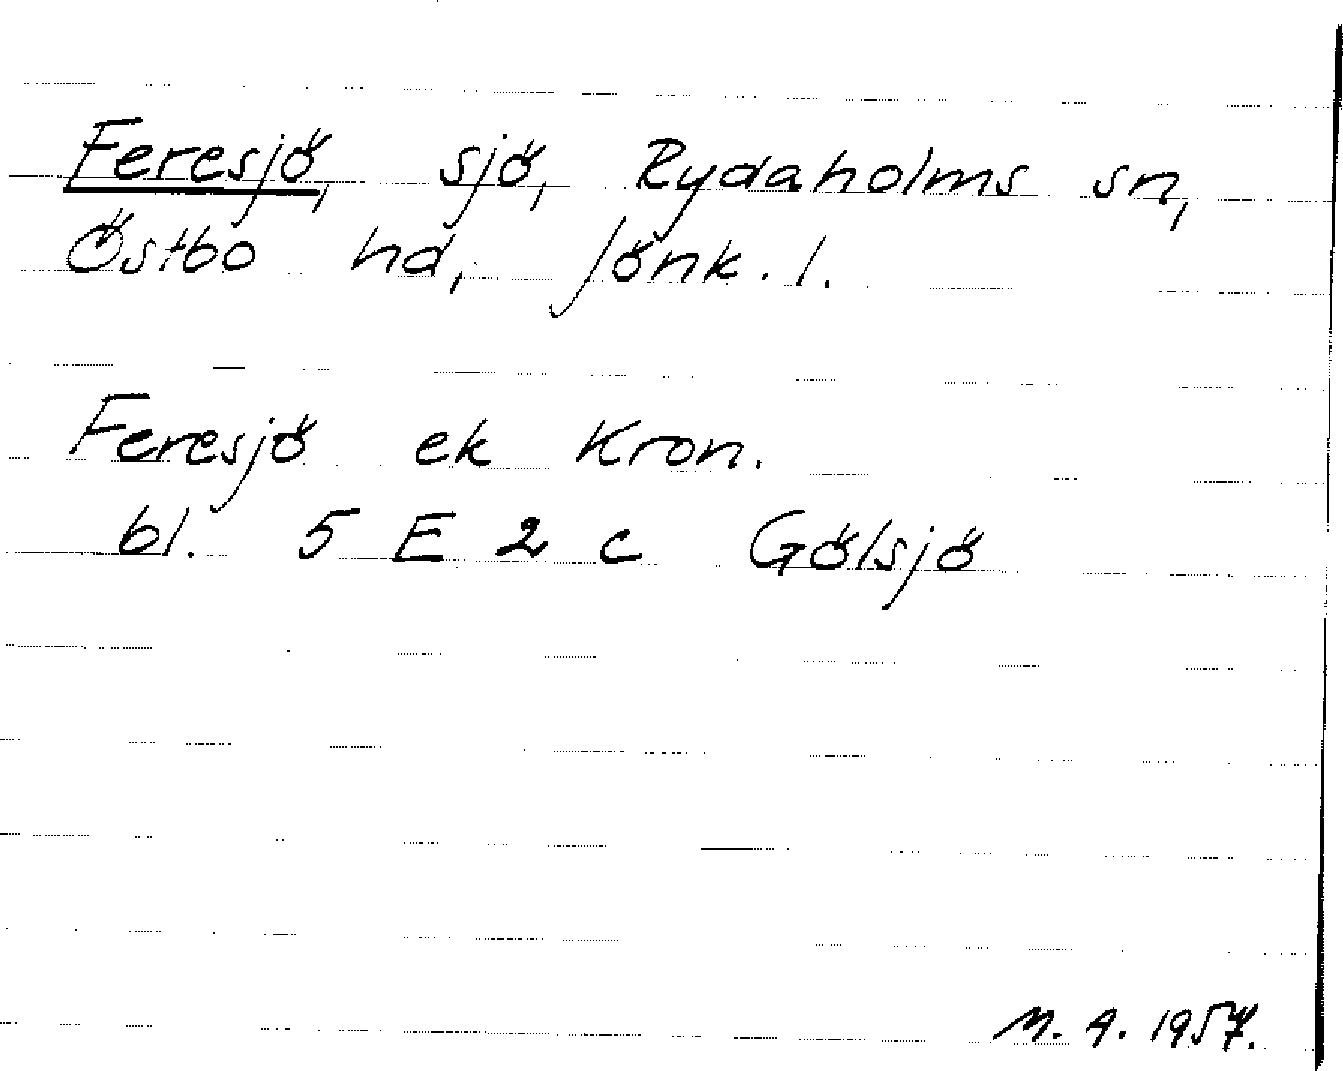 Feresjö, sjö, Rydaholms sn,
Östbo hd, Jönk. l.
Feresjö ek Kron.
bl. 5 E 2 c Gölsjö
M. A. 1957.